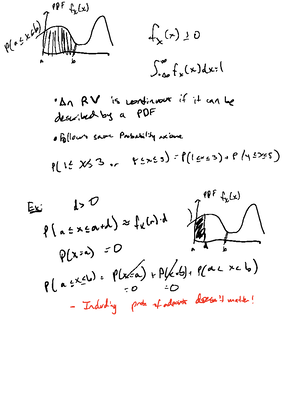 PDF fx(x)
P(a≤x≤b)
a b
fx(x) ≥ 0
∫-∞^∞ fx(x)dx=1
• An RV is continuous if it can be
described by a PDF
• Follows same Probability axioms
P(1≤ X≤3 or 4≤x≤5) = P(1≤x≤3) + P(4≤x≤5)
Ex: d>0
PDF fx(x)
P(a≤x≤a+d) ≈ fx(a)·d
a b
P(x=a) = 0
P(a≤x≤b) = P(x=a) + P(x=b) + P(a<x<b)
=0 =0
- Including prob of doesn't matter!